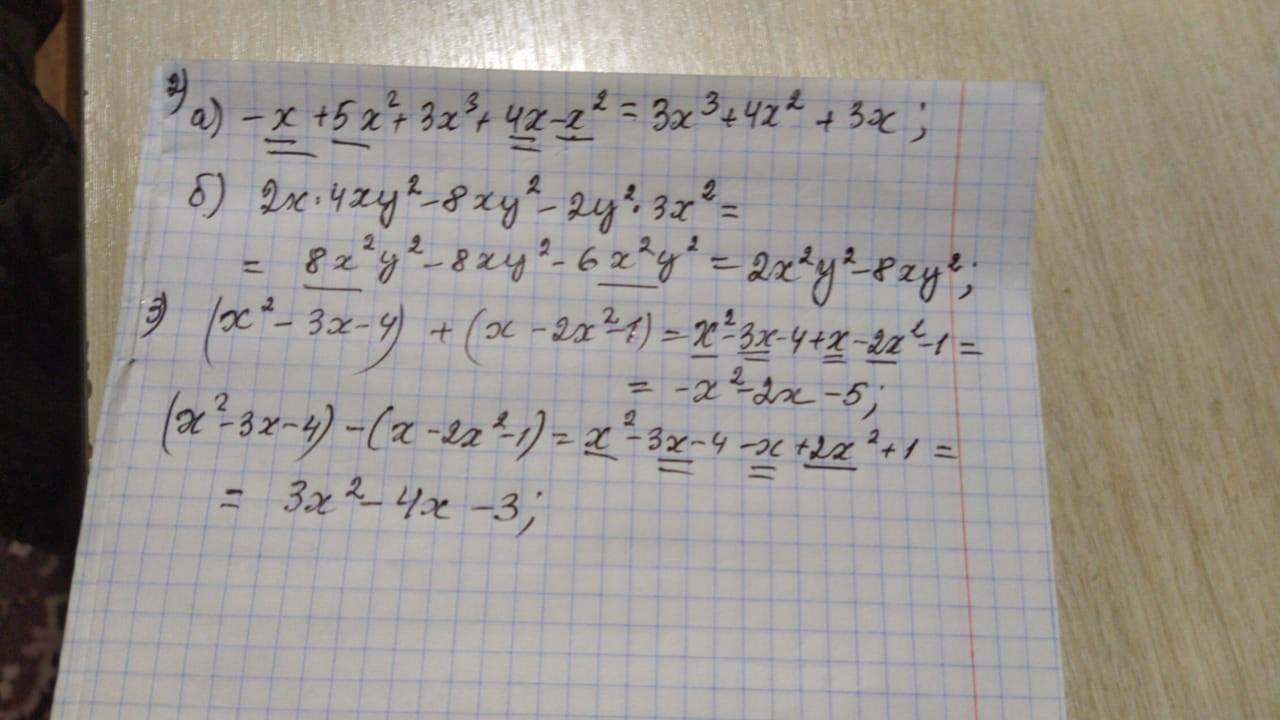 2) а) -x + 5x² + 3x³ + 4x - x² = 3x³ + 4x² + 3x ;
б) 2x · 4xy² - 8xy² - 2y² · 3x² =
= 8x²y² - 8xy² - 6x²y² = 2x²y² - 8xy²;
3) (x² - 3x - 4) + (x - 2x² - 1) = x² - 3x - 4 + x - 2x² - 1 =
= -x² - 2x - 5;
(x² - 3x - 4) - (x - 2x² - 1) = x² - 3x - 4 - x + 2x² + 1 =
= 3x² - 4x - 3;